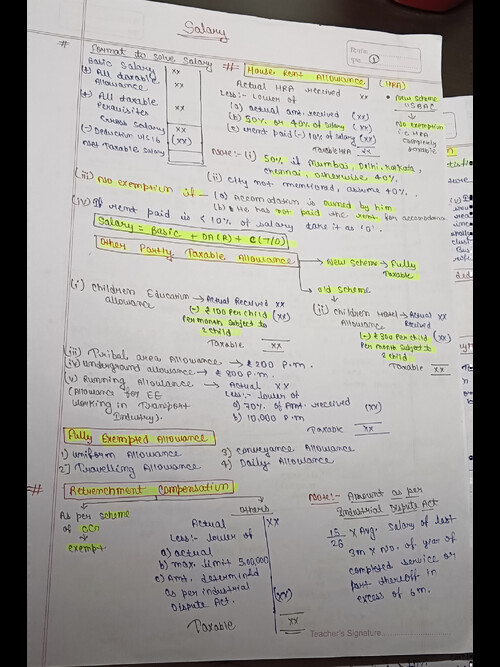 Salary
Date
Page 1
# Format to solve salary
Basic Salary xx
(+) All taxable
Allowance xx
(+) All taxable
Perquisites xx
Gross salary xx
(-) Deduction U/S 16 (xx)
Net Taxable Salary
# House Rent Allowance (HRA)
Actual HRA received xx
Less:- Lower of
(a) actual amt. received (xx)
(b) 50% or 40% of salary (xx)
(c) rent paid (-) 10% of salary (xx)
Taxable HRA xx
New scheme
115BAC
No exemption
i.e. HRA
completely
taxable
Note:- (i) 50% if Mumbai, Delhi, Kolkata,
Chennai, otherwise 40%.
(ii) City not mentioned, assume 40%.
(iii) No exemption if (a) Accomodation is owned by him
(b) He has not paid the rent for accomodation
(iv) If rent paid is < 10% of salary take it as '0'.
Salary = Basic + DA(R) + C(T/O)
Other Partly Taxable Allowance
New Scheme → Fully
Taxable
old scheme
(i) Children Education → Actual Received xx
allowance (-) ₹100 Per child (xx)
Per month subject to
2 child
Taxable xx
(ii) Children Hostel → Actual xx
Allowance Received
(-) ₹300 Per child (xx)
Per month subject to
2 child
Taxable xx
(iii) Tribal area Allowance → ₹200 P.m.
(iv) underground allowance → ₹800 P.m.
(v) Running Allowance → Actual xx
(Allowance for EE Less:- lower of
working in Transport a) 70% of Amt. received (xx)
Industry). b) 10,000 P.m
Taxable xx
Fully Exempted Allowance
1) uniform Allowance 3) conveyance Allowance
2) Travelling Allowance 4) Daily Allowance
# Retrenchment Compensation
As per scheme
of CG
→ exempt
others
Actual xx
Less:- lower of
a) actual
b) max. limit 5,00,000
c) Amt. determined
as per industrial
Dispute Act. (xx)
Taxable xx
Note:- Amount as per
Industrial Dispute Act
15/26 x Avg. salary of last
3m x No. of year of
completed service or
part thereoff in
excess of 6m.
Teacher's Signature